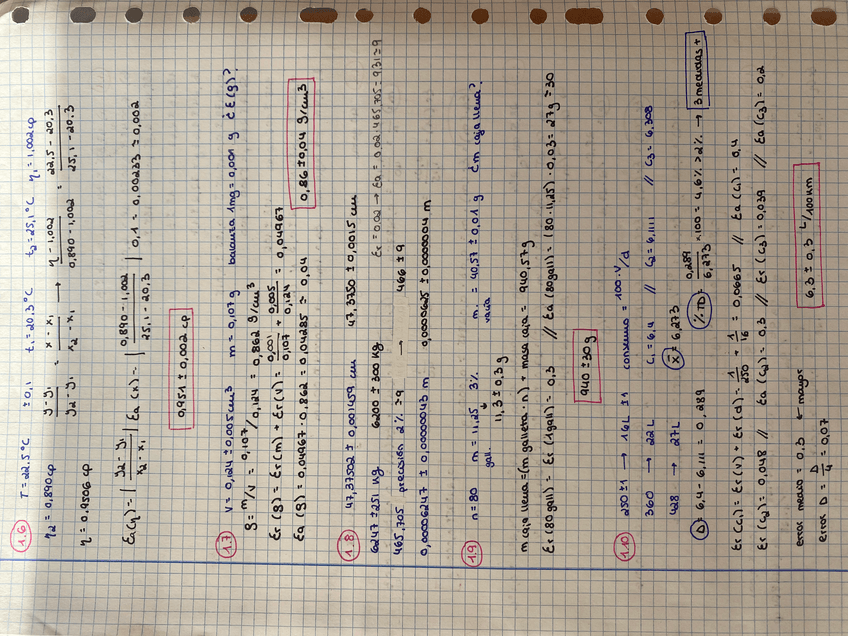 1.6 T = 22.5°C ±0,1 t₁ = 20.3°C t₂ = 25,1°C η₁ = 1,002 cp
η₂ = 0,890 cp (y - y₁)/(y₂ - y₁) = (x - x₁)/(x₂ - x₁) → (η - 1,002)/(0,890 - 1,002) = (22,5 - 20,3)/(25,1 - 20.3)
η = 0.9506 cp
Ea(η) = |(y₂ - y₁)/(x₂ - x₁)| Ea(x) = |(0,890 - 1,002)/(25,1 - 20,3)| 0,1 = 0,00233 ≃ 0,002
0,951 ± 0,002 cp
1.7 V = 0,124 ± 0,005 cm3 m = 0,107 g balanza 1mg = 0,001 g ¿E(ρ)?
ρ = m/v = 0,107/0,124 = 0,862 g/cm3
Er(ρ) = Er(m) + Er(v) = 0,001/0,107 + 0,005/0,124 = 0,04967
Ea(ρ) = 0,04967 · 0,862 = 0,04285 ≃ 0,04 0,86 ± 0,04 g/cm3
1.8 47,37502 ± 0,001459 cm 47,3750 ± 0,0015 cm
6247 ± 251 kg 6200 ± 300 kg Er = 0.02 → Ea = 0,02·465,705 = 9,31 ≃ 9
465,705 precisión 2% ≃ 9 → 466 ± 9
0,00006247 ± 0,00000043 m 0,0000625 ± 0,0000004 m
1.9 n = 80 m gall. = 11,25 3% m. vacía = 40,57 ± 0,01 g ¿m caja llena?
↓
11,3 ± 0,3 g
m caja llena = (m galleta · n) + masa caja = 940,57 g
Er (80 gall) = Er (1 gall) = 0.3 // Ea (80 gall) = (80·11,25) · 0,03 = 27g ≃ 30
940 ± 30 g
1.10 250 ± 1 → 16 L ± 1 consumo = 100·V/d
360 → 22 L C₁ = 6.4 // C₂ = 6,1111 // C₃ = 6,308
428 → 27 L x̄ = 6,273
D = 6.4 - 6,111 = 0,289 %TD = 0,289/6,273 × 100 = 4,6% > 2% → 3 medidas +
Er (C₁) = Er (v) + Er (d) = 1/250 + 1/16 = 0,0665 // Ea (C₁) = 0,4
Er (C₂) = 0,048 // Ea (C₂) = 0,3 // Er (C₃) = 0,039 // Ea (C₃) = 0,2
error medio = 0,3 ← mayor
error D = D/4 = 0,07 6,3 ± 0,3 L/100km